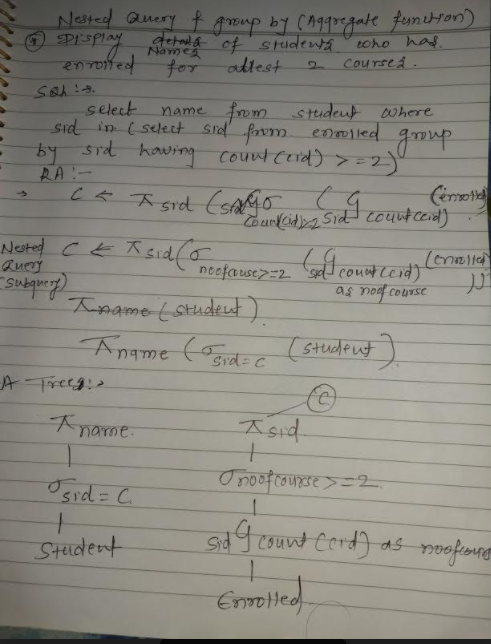 Nested Query & group by (Aggregate function)
Display details Names of students who has
enrolled for atlest 2 courses.
Soln :→
select name from student where
sid in (select sid from enrolled group
by sid having count(cid) >=2)
RA :-
→ C ← π sid ( σ count(cid)>2 ( sid G count(cid) (enrolled)
Nested Query (subquery) C ← π sid ( σ noofcourse>=2 ( sid G count(cid) as noofcourse (enrolled)
π name (student)
π name ( σ sid=C (student) ).
A Trees:→
π name. π sid. C
σ sid = C. σ noofcourse>=2
Student sid G count(cid) as noofcours
Enrolled